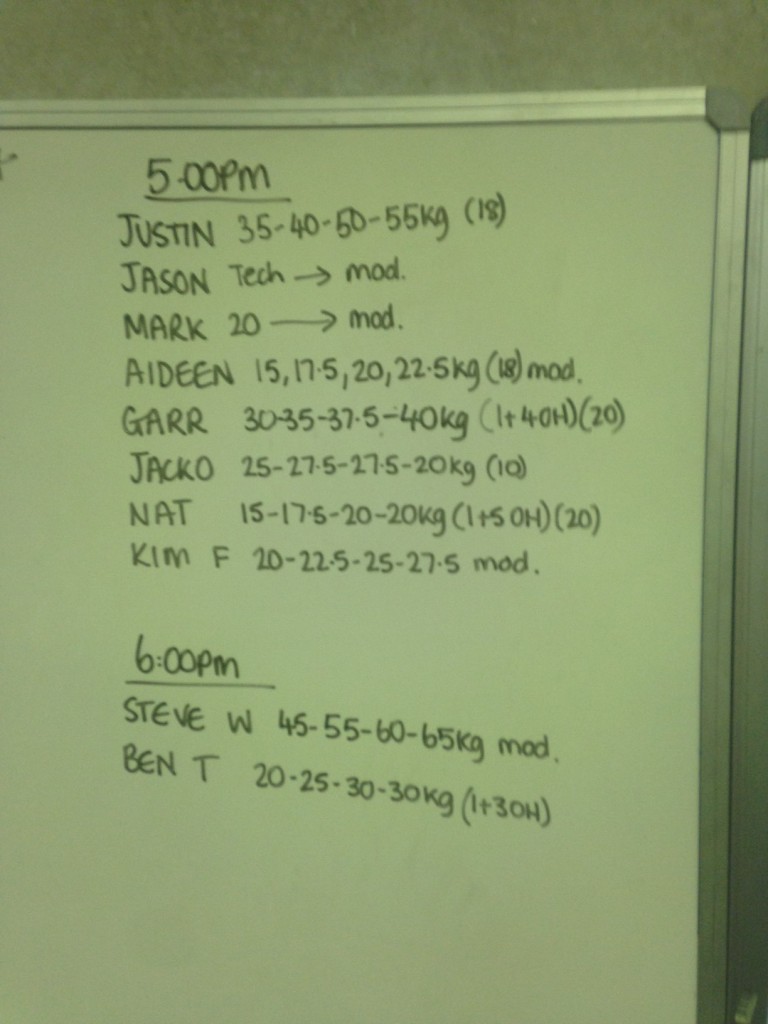 5.00pm
JUSTIN 35-40-50-55kg (18)
JASON Tech → mod.
MARK 20 → mod.
AIDEEN 15, 17.5, 20, 22.5kg (18) mod.
GARR 30-35-37.5-40kg (1+4OH)(20)
JACKO 25-27.5-27.5-20kg (10)
NAT 15-17.5-20-20kg (1+5OH)(20)
KIM F 20-22.5-25-27.5 mod.
6:00pm
STEVE W 45-55-60-65kg mod.
BEN T 20-25-30-30kg (1+3OH)